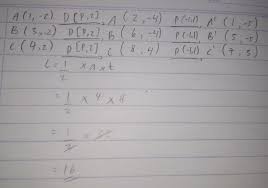 A (1, -2) D [P, 2], A (2, -4) P(-1,-1) A' (1, -5)
B (3, -2) D [P, 2], B (6, -4) P(-1,-1) B' (5, -5)
C (4, 2) D [P, 2], C (8, 4) P(-1,-1) C' (7, 3)
L = 1/2 x a x t
= 1/2 x 4 x 8
= 1/2 x
= 16